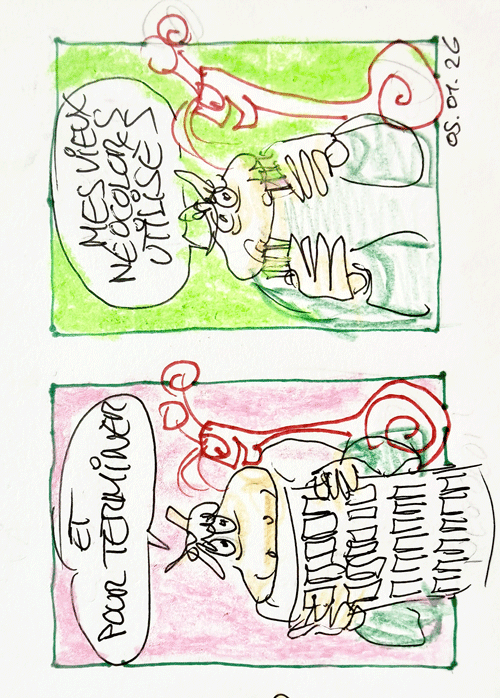 ET
POUR TERMINER
MES VIEUX
NÉOCOLORES
UTILISÉS
05.01.26